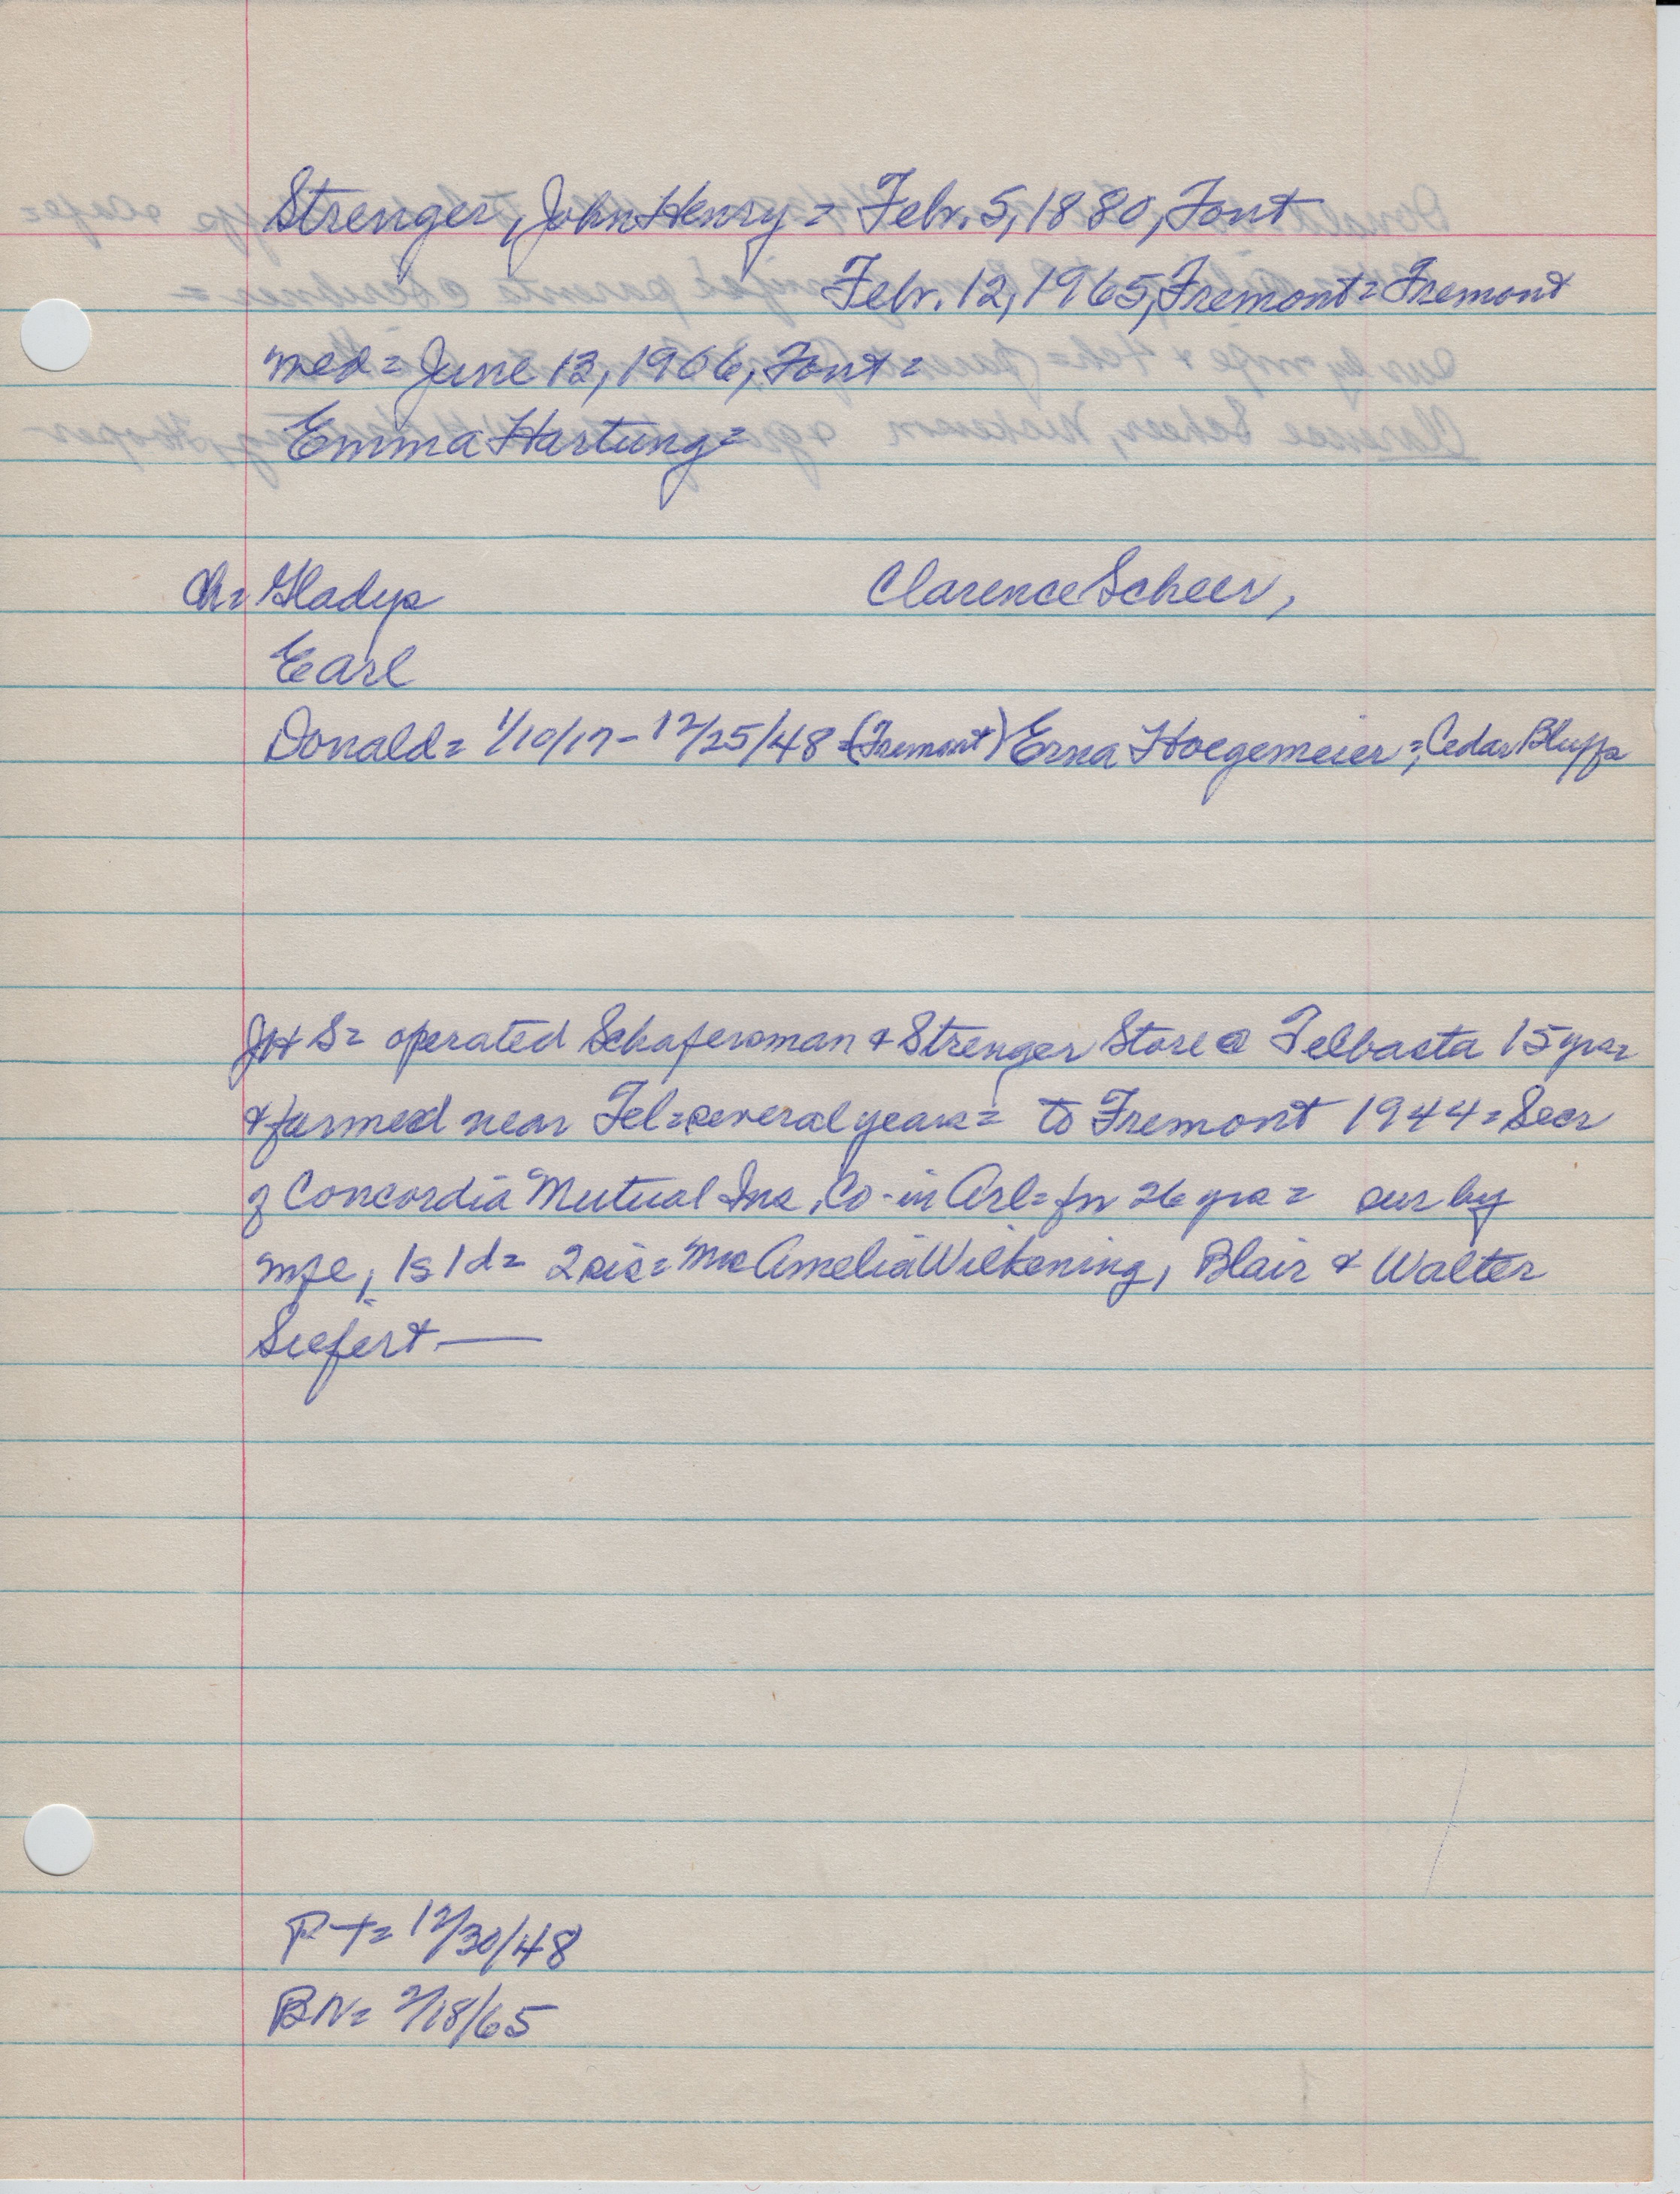 Strenger, John Henry = Febr. 5, 1880, Font
Febr. 12, 1965, Fremont = Fremont
med = June 12, 1906, Font =
Emma Hartung =
ch = Gladys Clarence Scheer,
Earl
Donald = 1/10/17 - 12/25/48 = (Fremont) Erna Hoegemeier =, Cedar Bluffs
JHS = operated Schafersman & Strenger Store @ Telbasta 15 yrs =
& farmed near Tel = several years = to Fremont 1944 = Secr
of Concordia Mutual Ins. Co - in Arl = for 26 yrs = sur by
wife, 1s 1d = 2 sis = Mrs Amelia Wilkening, Blair & Walter
Siefert —
FT = 12/30/48
BN = 2/18/65